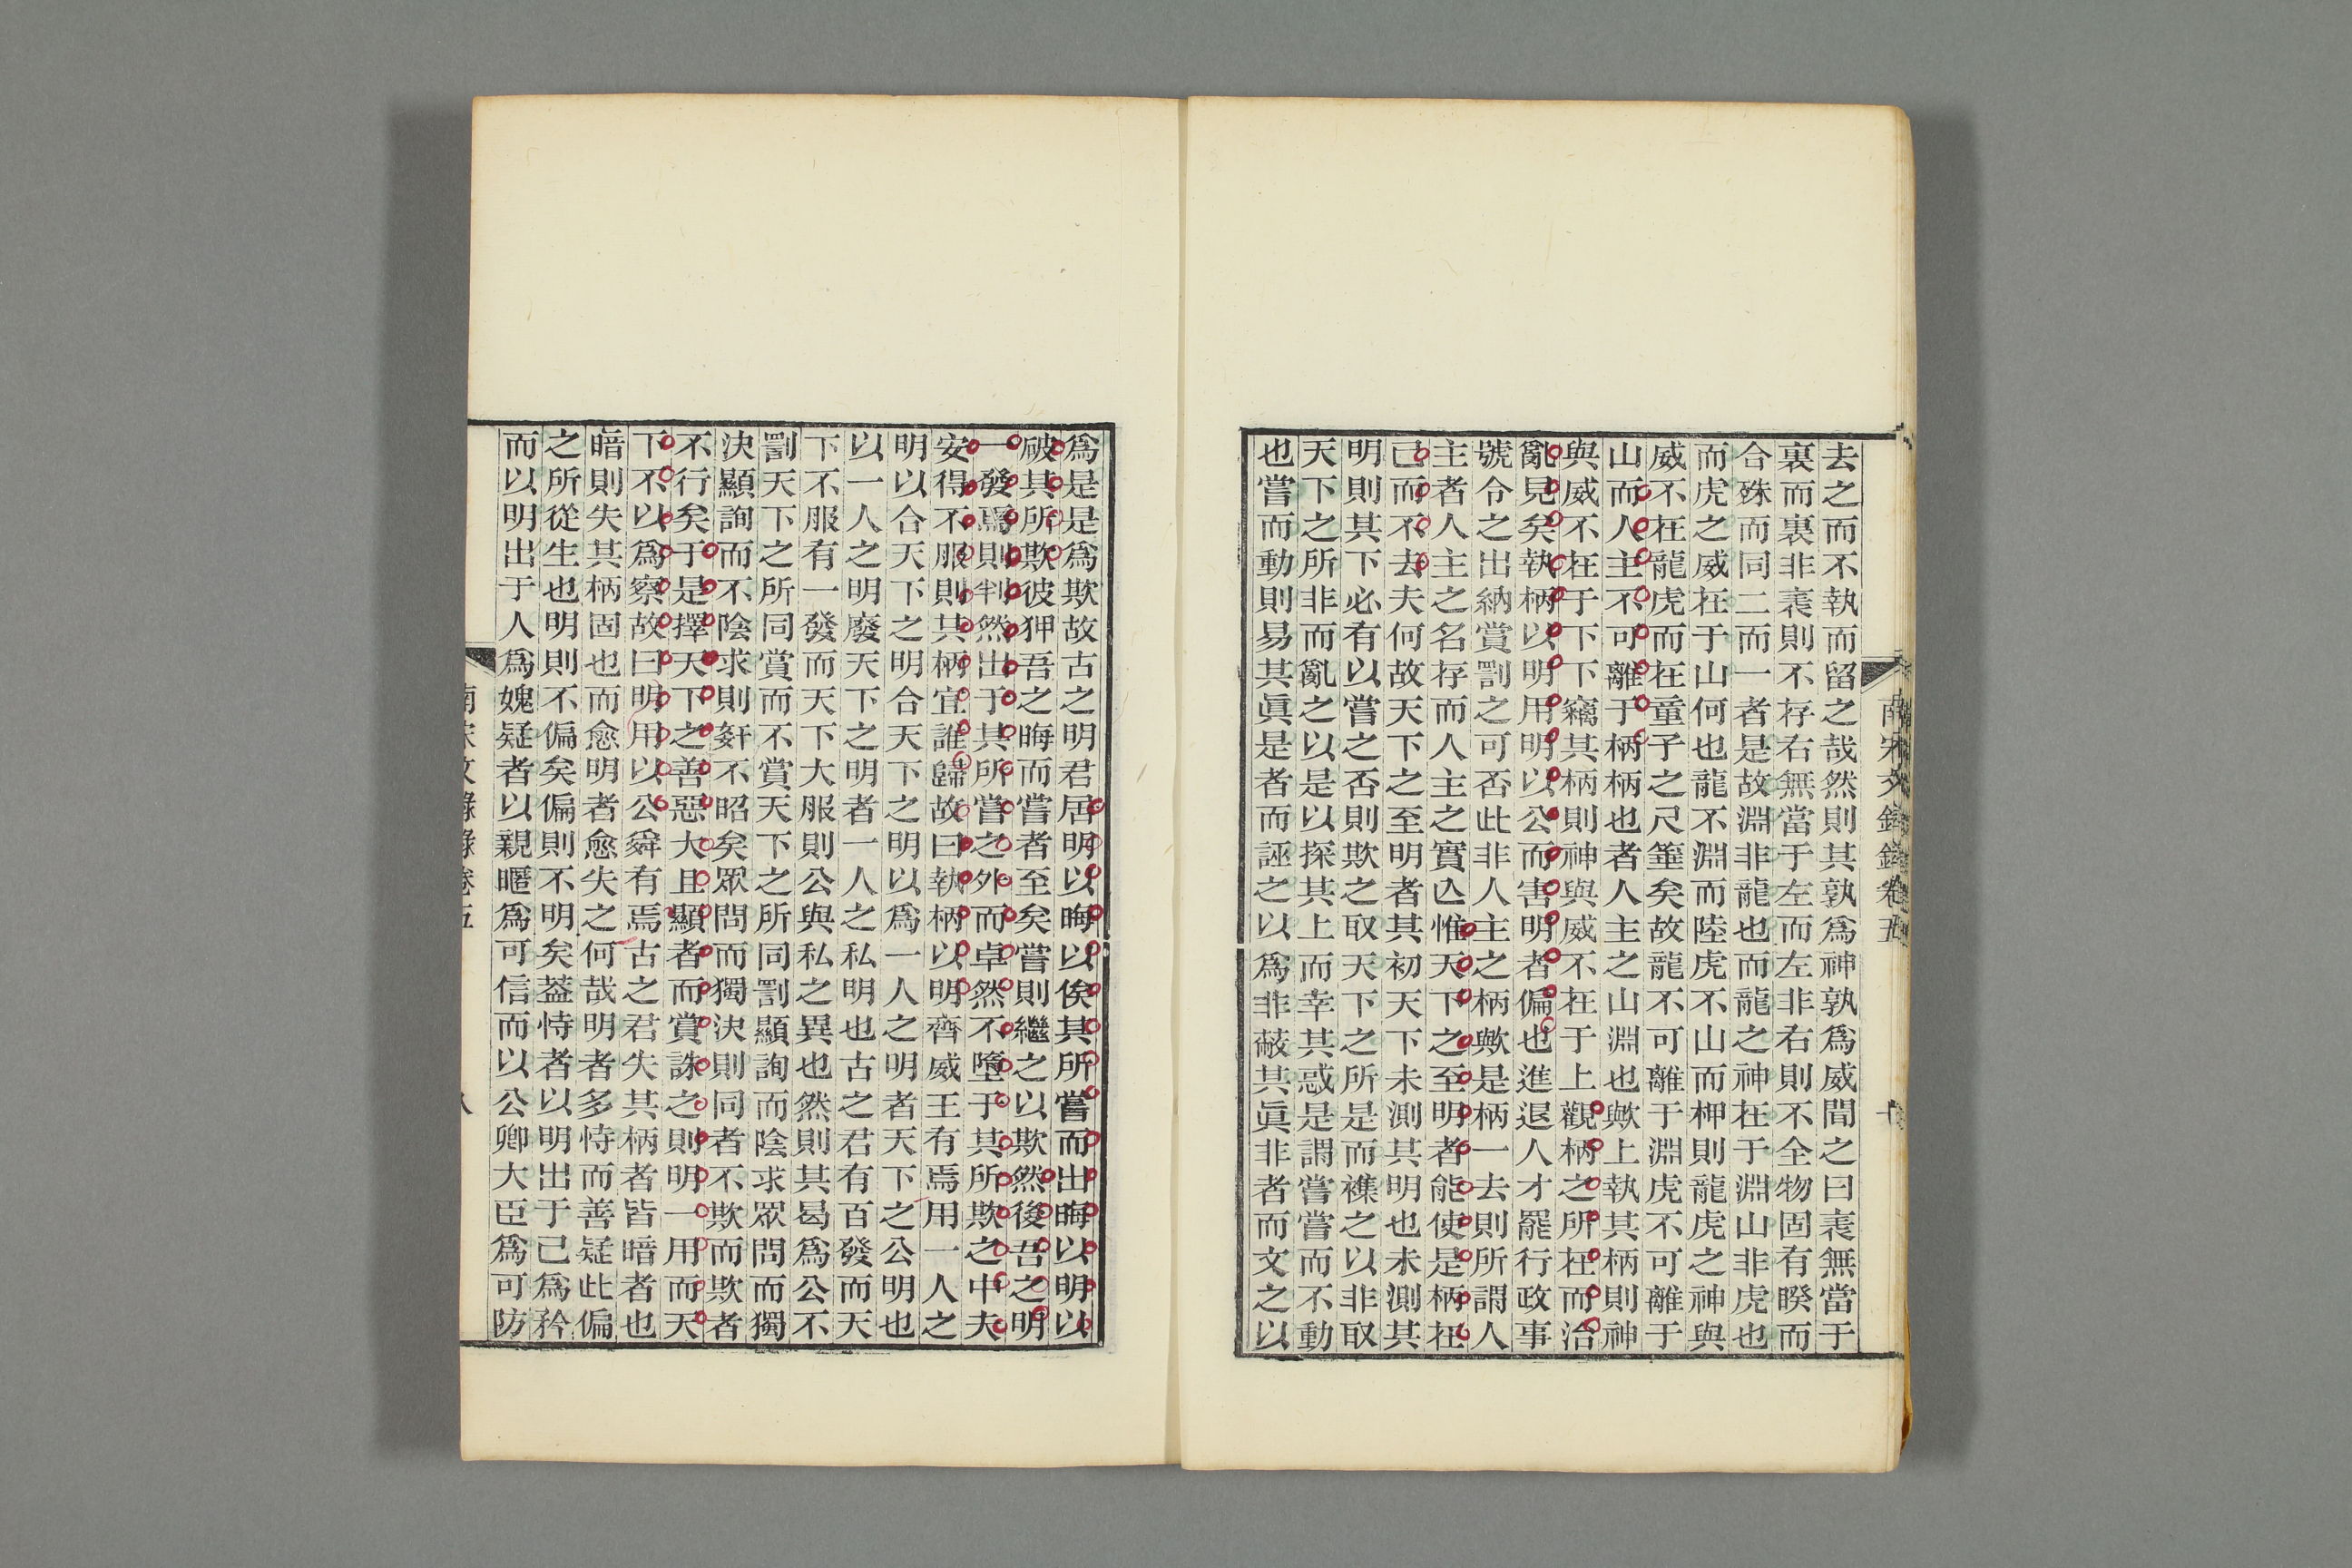 南宋文錄錄卷五
去之而不執而留之哉然則其孰爲神孰爲威聞之曰裹無當于
裏而裏非袤則不存右無當于左而左非右則不全物固有睽而
合殊而同二而一者是故淵非龍也而龍之神在于淵山非虎也
而虎之威在于山何也龍不淵而陸虎不山而柙則龍虎之神與
威不在龍虎而在童子之尺箠矣故龍不可離于淵虎不可離于
山而人主不可離于柄柄也者人主之山淵也歟上執其柄則神
與威不在于下下竊其柄則神與威不在于上觀柄之所在而治
亂見矣執柄以明用明以公而害明者偏也進退人才罷行政事
號令之出納賞罰之可否此非人主之柄歟是柄一去則所謂人
主者人主之名存而人主之實亾惟天下之至明者能使是柄在
己而不去夫何故天下之至明者其初天下未測其明也未測其
明則其下必有以嘗之否則欺之取天下之所是而襍之以非取
天下之所非而亂之以是以探其上而幸其惑是謂嘗嘗而不動
也嘗而動則易其眞是者而誣之以爲非蔽其眞非者而文之以
爲是是爲欺故古之明君居明以晦以俟其所嘗而出晦以明以
破其所欺彼狎吾之晦而嘗者至矣嘗則繼之以欺然後吾之明
一發焉則判然出于其所嘗之外而卓然不墮于其所欺之中夫
安得不服則其柄宜誰歸故曰執柄以明齊威王有焉用一人之
明以合天下之明合天下之明以爲一人之明者天下之公明也
以一人之明廢天下之明者一人之私明也古之君有百發而天
下不服有一發而天下大服則公與私之異也然則其曷爲公不
罰天下之所同賞而不賞天下之所同罰顯詢而陰求眾問而獨
決顯詢而不陰求則姦不昭矣眾問而獨決則同者不欺而欺者
不行矣于是擇天下之善惡大且顯者而賞誅之則明一用而天
下不以爲察故曰明用以公舜有焉古之君失其柄者皆暗者也
暗則失其柄固也而愈明者愈失之何哉明者多恃而善疑此偏
之所從生也明則不偏矣偏則不明矣葢恃者以明出于己爲矜
而以明出于人爲媿疑者以親暱爲可信而以公卿大臣爲可防
南宋文錄錄卷五
八